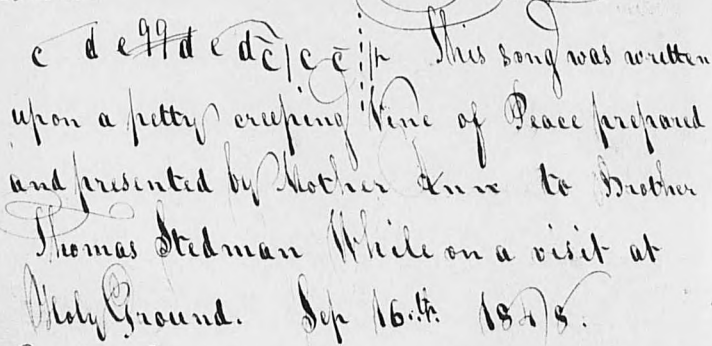 c d e g g d e d c c c This song was written
upon a petty creeping Vine of Peace prepared
and presented by Mother Ann to Brother
Thomas Stedman While on a visit at
Holy Ground. Sep 16.th. 1848.